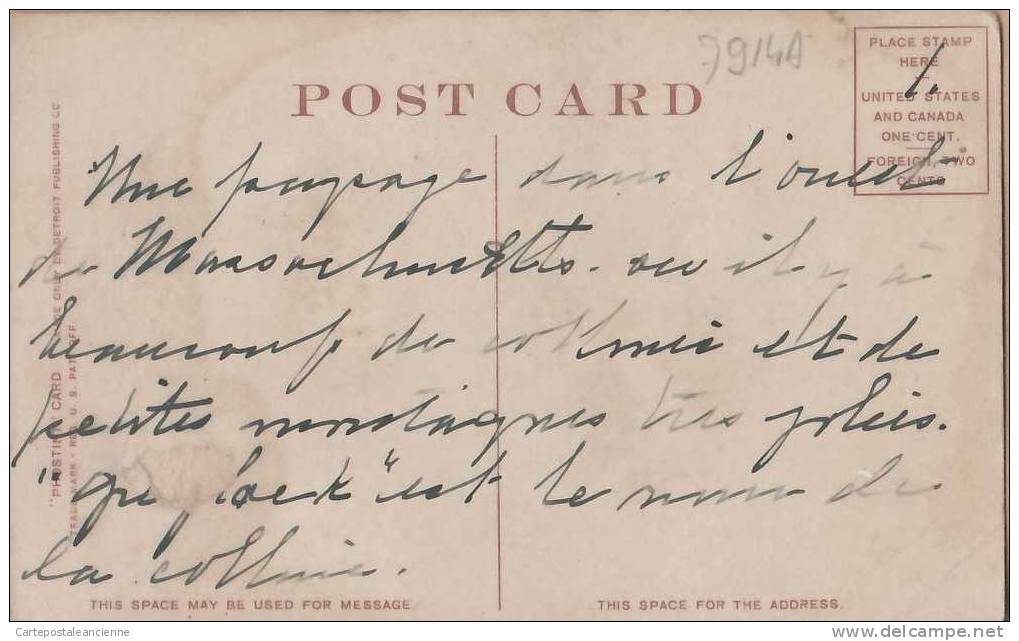 79/4A
POST CARD
PLACE STAMP
HERE
UNITED STATES
AND CANADA
ONE CENT.
FOREIGN, TWO
CENTS
1.
Une paysage dans l'ouest
de Massachusetts. ou il y a
beaucoup de colline et de
petites montagnes tres jolies.
" " est le nom de
la colline.
"PHOSTINT CARD" MADE ONLY BY DETROIT PUBLISHING CO.
TRADE MARK - REG. U. S. PAT. OFF.
THIS SPACE MAY BE USED FOR MESSAGE
THIS SPACE FOR THE ADDRESS.
Cartepostaleancienne
www.delcampe.net